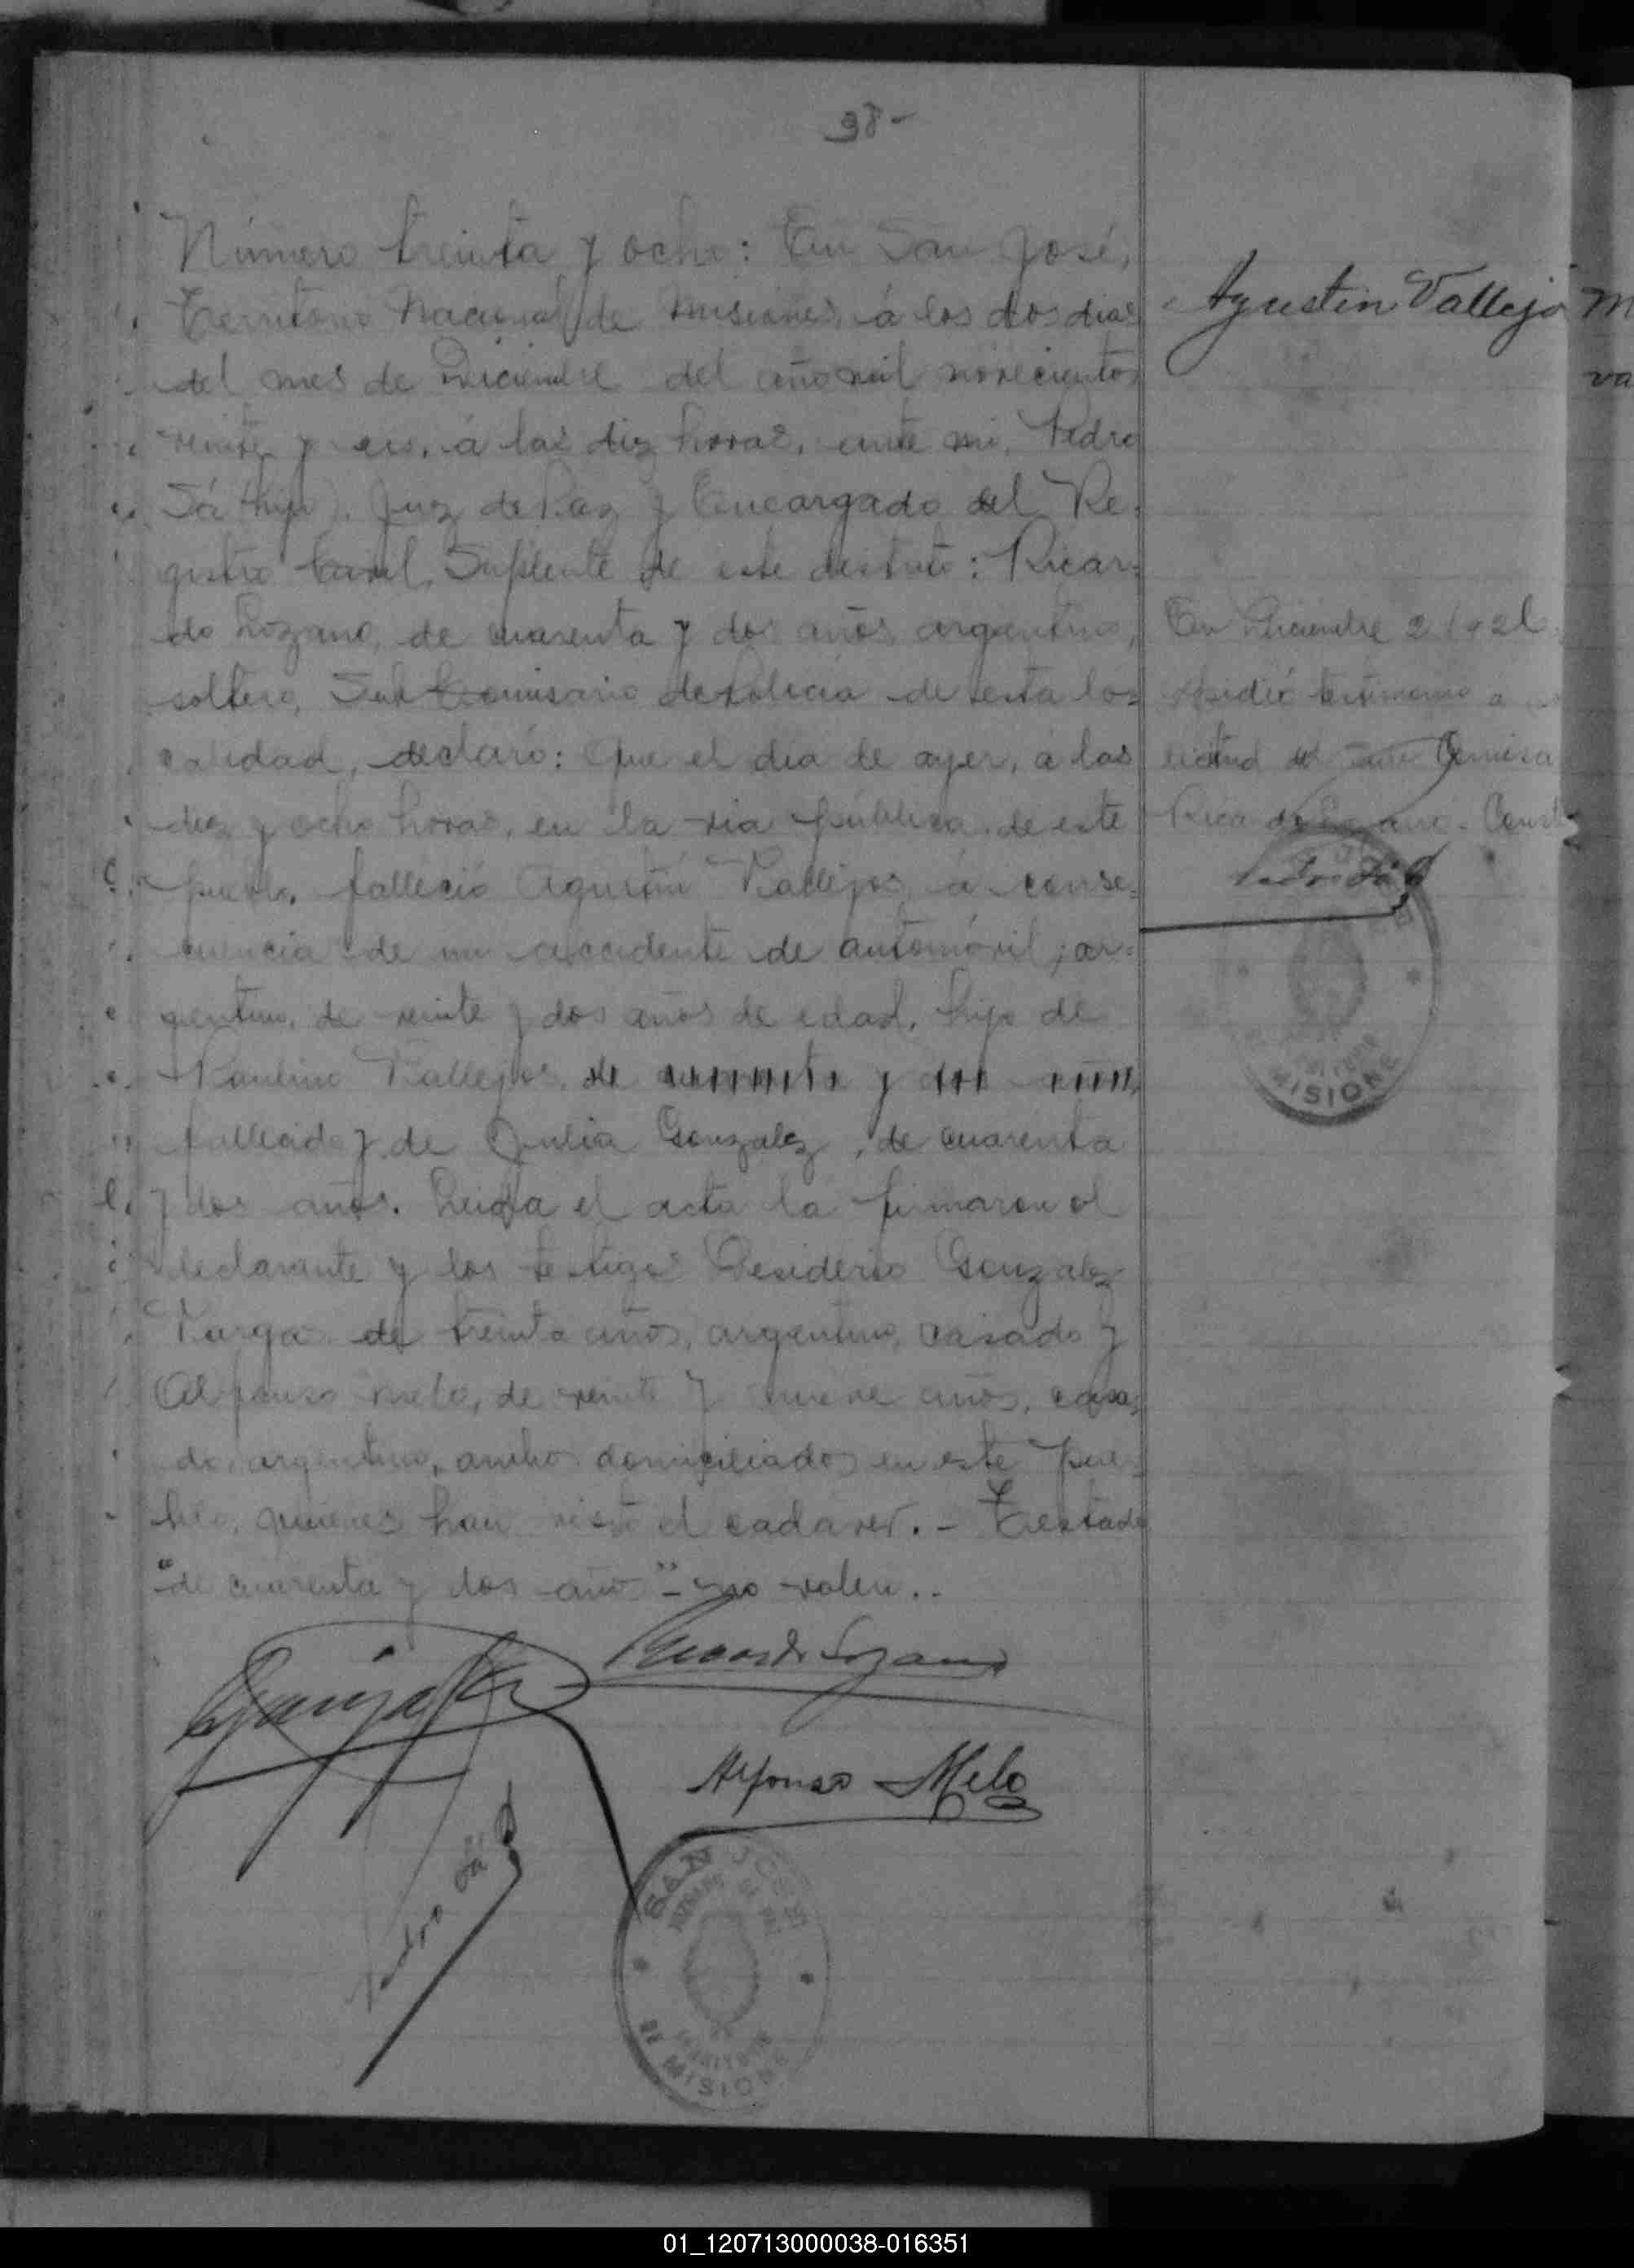 38-
Número treinta y ocho: En San José,
Territorio Nacional de Misiones, á los dos dias
del mes de Diciembre del año mil novecientos
veinte y seis, á las diez horas, ante mi, Pedro
Sá (hijo), Juez de Paz y Encargado del Re-
gistro Civil Suplente de este distrito: Ricar-
do Lozano, de cuarenta y dos años, argentino,
soltero, Sub Comisario de Policia de esta lo-
calidad, declaró: Que el dia de ayer, á las
diez y ocho horas, en la via pública, de este
pueblo, falleció Agustin Vallejos, á conse-
cuencia de un accidente de automóvil; ar-
gentino, de veinte y dos años de edad, hijo de
Paulino Vallejos, de cuarenta y dos años,
fallecido y de Julia Gonzalez, de cuarenta
y dos años. Leida el acta la firmaron el
declarante y los testigos Desiderio Gonzalez
Vargas de treinta años, argentino, casado y
Alfonso Melo, de veinte y nueve años, casa-
do, argentino, ambos domiciliados en este pue-
blo, quienes han visto el cadaver. - Testado
"de cuarenta y dos años" - no valen..
Ricardo Lozano
Alfonso Melo
Pedro Sá
SAN JOSE
JUZGADO DE PAZ
TERRITORIO
DE MISIONES
Agustin Vallejo
En Diciembre 2 1926
expidió testimonio á
licitud del Comisa
Ricardo Lozano. Const
Pedro Sá
MISIONE
M
va
01_120713000038-016351